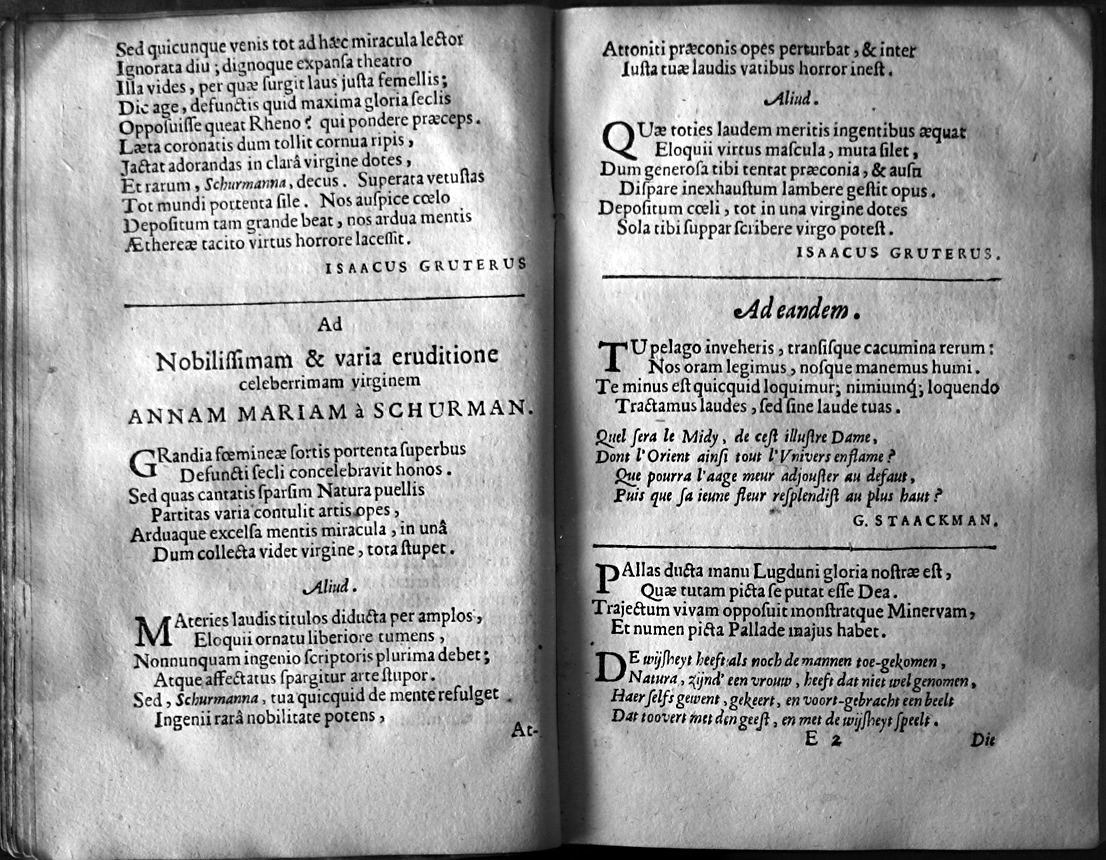 Sed quicunque venis tot ad hæc miracula lector
Ignorata diu ; dignoque expanſa theatro
Illa vides, per quæ ſurgit laus juſta femellis;
Dic age, defunctis quid maxima gloria ſeclis
Oppoſuiſſe queat Rheno? qui pondere præceps.
Læta coronatis dum tollit cornua ripis,
Jactat adorandas in clarâ virgine dotes,
Et rarum, Schurmanna, decus. Superata vetuſtas
Tot mundi portenta ſile. Nos auſpice cœlo
Depoſitum tam grande beat, nos ardua mentis
Æthereæ tacito virtus horrore laceſſit.
ISAACUS GRUTERUS
Ad
Nobiliſſimam & varia eruditione
celeberrimam virginem
ANNAM MARIAM à SCHURMAN.
GRandia fœmineæ ſortis portenta ſuperbus
Defuncti ſecli concelebravit honos.
Sed quas cantatis ſparſim Natura puellis
Partitas varia contulit artis opes,
Arduaque excelſa mentis miracula, in unâ
Dum collecta videt virgine, tota ſtupet.
Aliud.
MAteries laudis titulos diducta per amplos,
Eloquii ornatu liberiore tumens,
Nonnunquam ingenio ſcriptoris plurima debet;
Atque affectatus ſpargitur arte ſtupor.
Sed, Schurmanna, tua quicquid de mente refulget
Ingenii rarâ nobilitate potens,
At-
Attoniti præconis opes perturbat, & inter
Iuſta tuæ laudis vatibus horror ineſt.
Aliud.
QUæ toties laudem meritis ingentibus æquat
Eloquii virtus maſcula, muta ſilet,
Dum generoſa tibi tentat præconia, & auſu
Diſpare inexhauſtum lambere geſtit opus.
Depoſitum cœli, tot in una virgine dotes
Sola tibi ſuppar ſcribere virgo poteſt.
ISAACUS GRUTERUS.
Ad eandem.
TU pelago inveheris, tranſiſque cacumina rerum:
Nos oram legimus, noſque manemus humi.
Te minus eſt quicquid loquimur; nimiumq́; loquendo
Tractamus laudes, ſed ſine laude tuas.
Quel ſera le Midy, de ceſt illuſtre Dame,
Dont l'Orient ainſi tout l'Vnivers enflame?
Que pourra l'aage meur adjouſter au defaut,
Puis que ſa ieune fleur reſplendiſt au plus haut?
G. STAACKMAN.
PAllas ducta manu Lugduni gloria noſtræ eſt,
Quæ tutam picta ſe putat eſſe Dea.
Trajectum vivam oppoſuit monſtratque Minervam,
Et numen picta Pallade majus habet.
DE wijſheyt heeft als noch de mannen toe-gekomen,
Natura, zijnd' een vrouw, heeft dat niet wel genomen,
Haer ſelfs gewent, gekeert, en voort-gebracht een beelt
Dat toovert met den geeſt, en met de wijſheyt ſpeelt.
E 2
Die